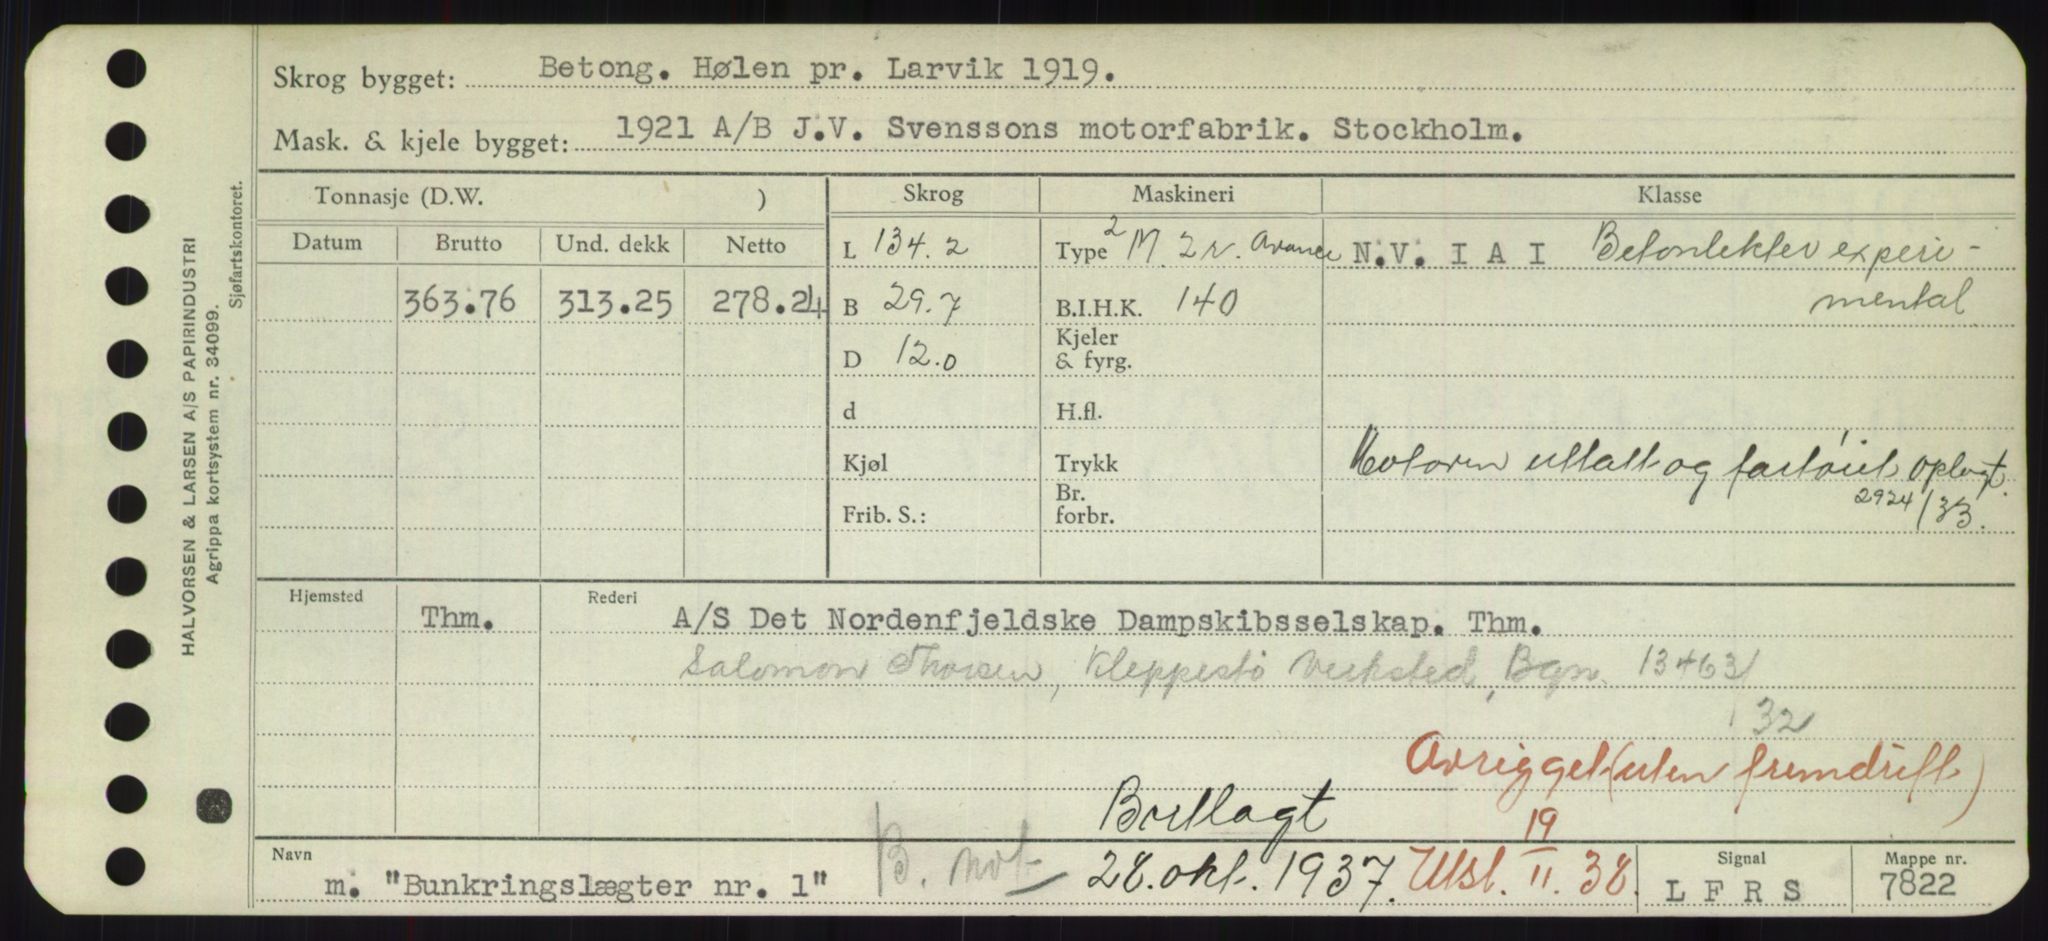 HALVORSEN & LARSEN A/S PAPIRINDUSTRI
Agrippa kortsystem nr. 34099.
Sjøfartskontoret.
Skrog bygget: Betong. Hølen pr. Larvik 1919.
Mask. & kjele bygget: 1921 A/B J.V. Svenssons motorfabrik. Stockholm.
Tonnasje (D.W. ) Skrog Maskineri Klasse
Datum Brutto Und. dekk Netto L 134.2 Type 2 M. 2 r. Avance N.V. I A I Betonlekter experi-
363.76 313.25 278.24 B 29.7 B.I.H.K. 140 mental
D 12.0 Kjeler & fyrg.
d H.fl.
Kjøl Trykk Motoren uttatt og fartöiet oplagt.
Frib. S.: Br. forbr. 2924/33.
Hjemsted Thm. Rederi A/S Det Nordenfjeldske Dampskibsselskap. Thm.
Salomon Thorsen, Kleppestö Verksted, Bgn. 13463/
32
Avrigget (uten fremdrift)
Borttagt
Navn m. "Bunkringslægter nr. 1" B. not 28. okt. 1937. Utsl. 19/11. 38. Signal L F R S Mappe nr. 7822